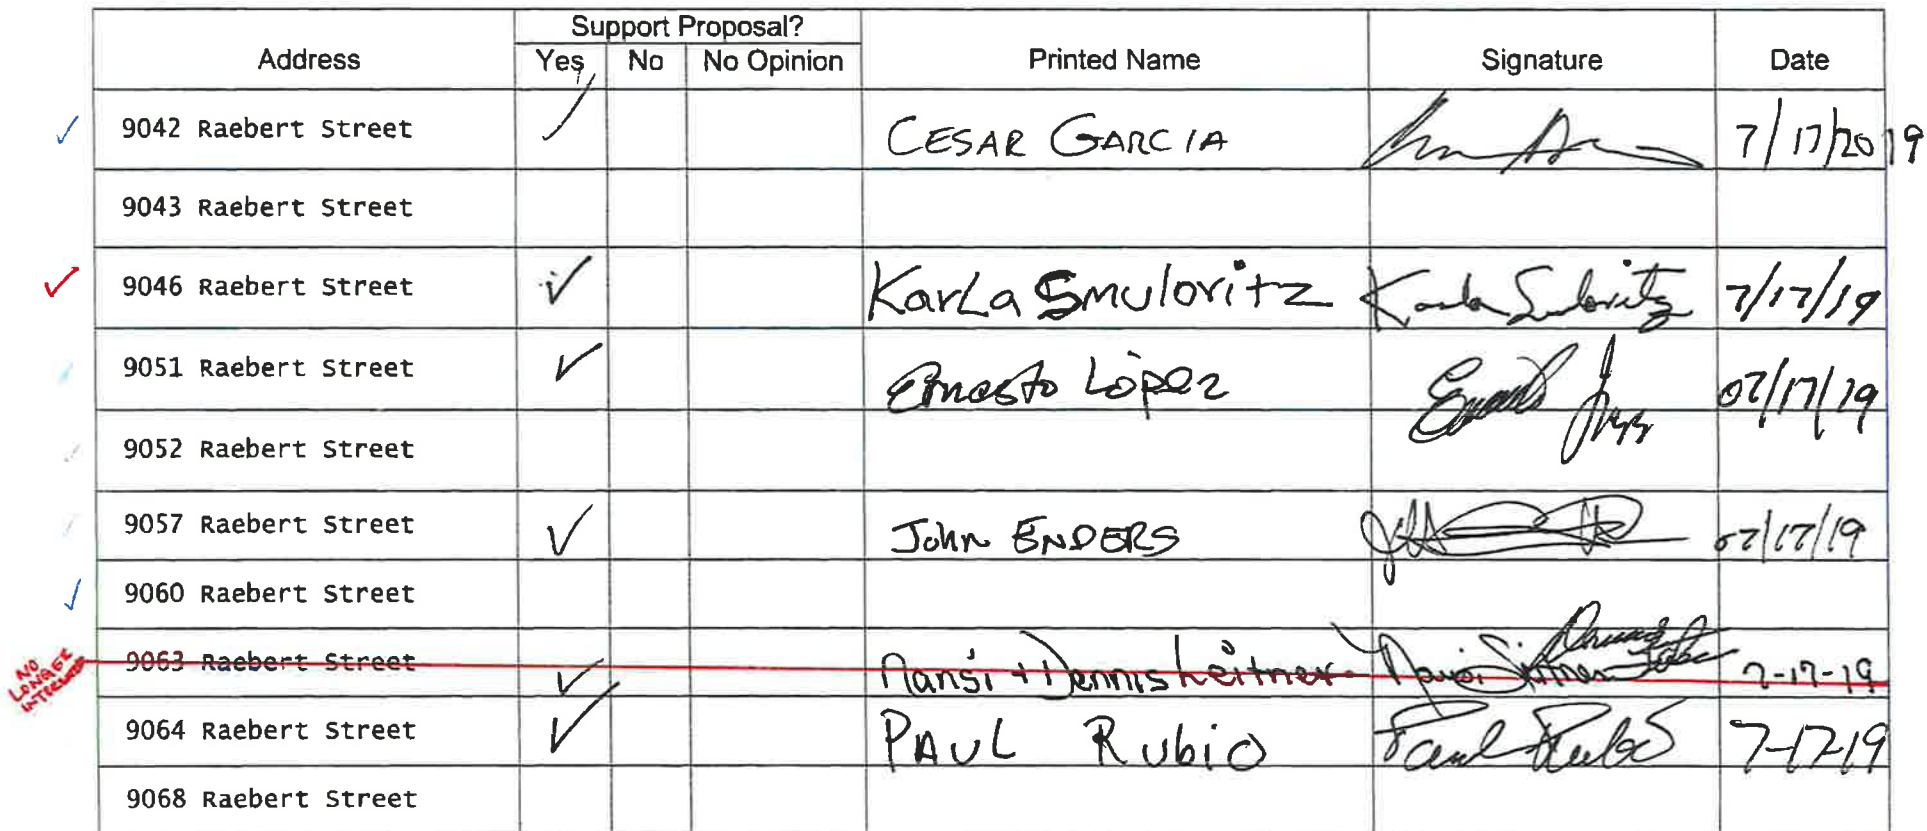 Support Proposal?
Address Yes No No Opinion Printed Name Signature Date
9042 Raebert Street CESAR GARCIA 7/17/2019
9043 Raebert Street
9046 Raebert Street KarLa Smulovitz Karla Smulovitz 7/17/19
9051 Raebert Street Ernesto López 07/17/19
9052 Raebert Street
9057 Raebert Street John ENDERS 07/17/19
9060 Raebert Street
NO LONGER INTERESTED
9063 Raebert Street Nansi + Dennis Leitner 7-17-19
9064 Raebert Street PAUL RUBIO Paul Rubio 7-17-19
9068 Raebert Street